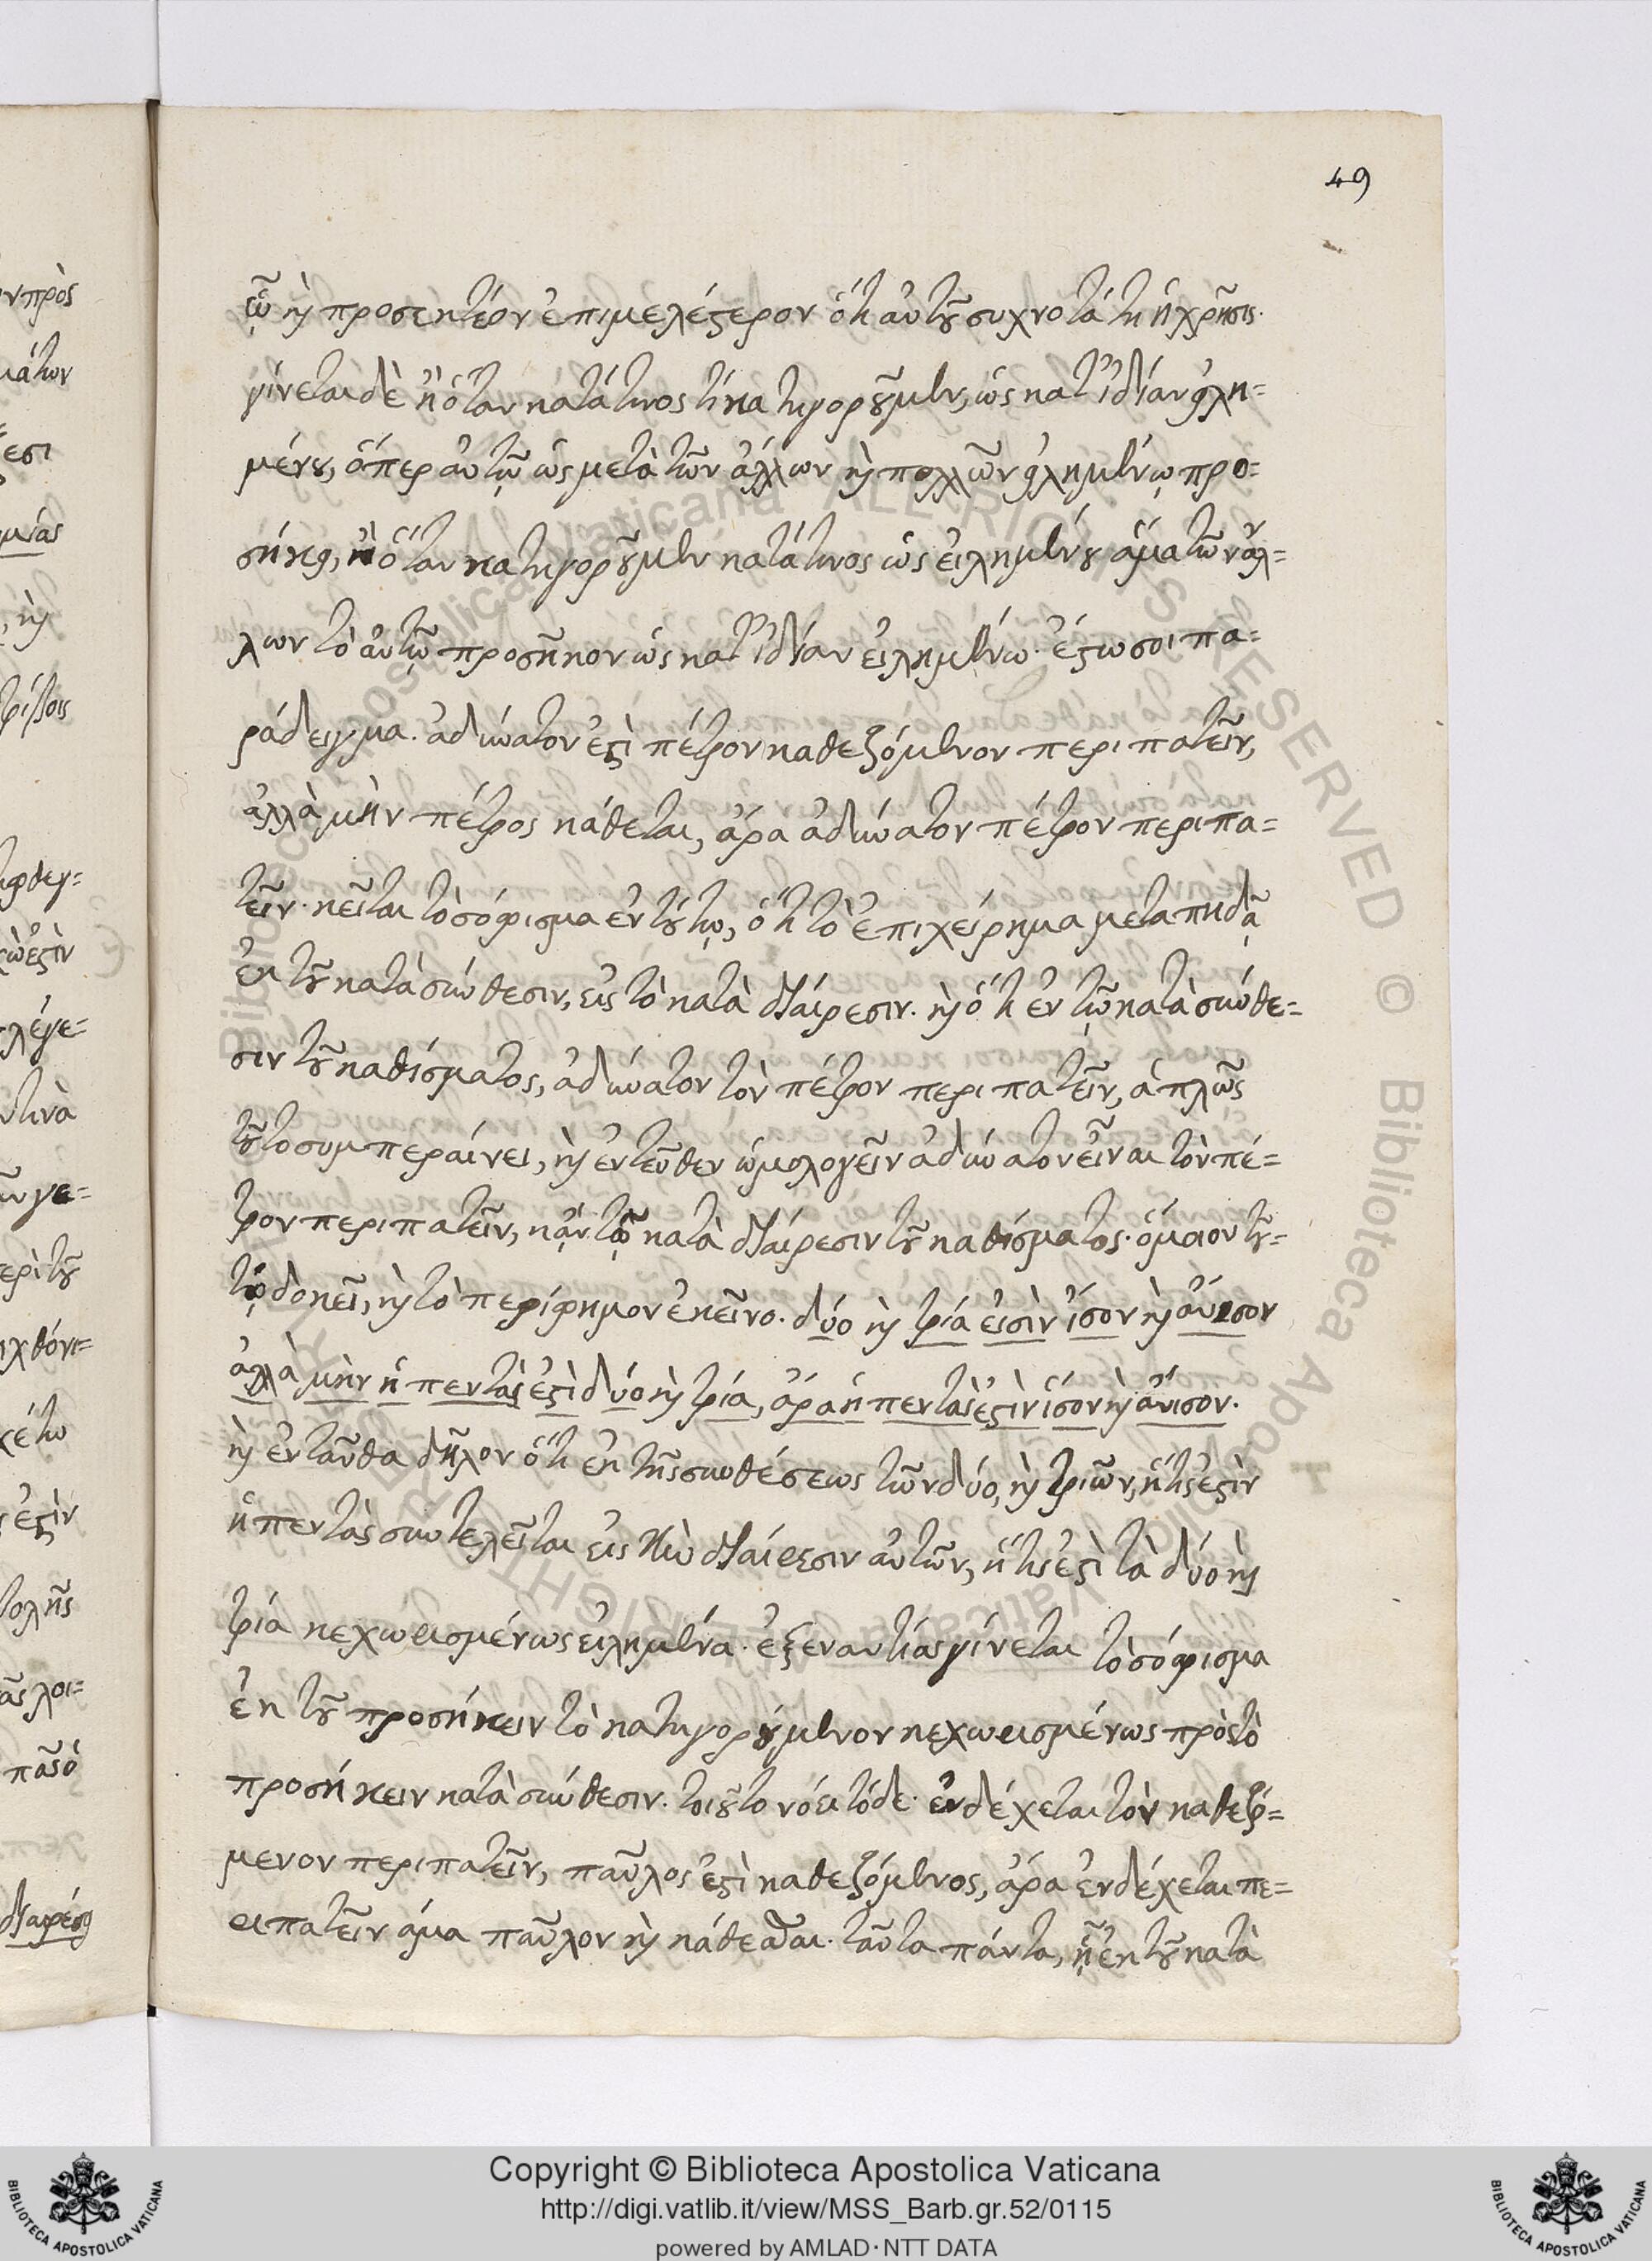 49
ᾧ καὶ προσεκτέον ἐπιμελέστερον ὅτι αὐτοῦ συχνοτάτη ἡ χρῆσις.
γίνεται δὲ ἢ ὅταν κατά τινος τὶ κατηγοροῦμεν, ὡς κατ' ἰδίαν εἰλη=
μένου, ὅπερ αὐτῷ ὡς μετὰ τῶν ἄλλων καὶ πολλῶν εἰλημένῳ προ=
σήκει, ἢ ὅταν κατηγοροῦμεν κατά τινος ὡς εἰλημένου ἅμα τῶν ἄλ=
λων τὸ αὐτῷ προσῆκον ὡς κατ' ἰδίαν εἰλημένῳ. ἔστω σοι πα=
ράδειγμα. ἀδύνατον ἐστὶ πέτρον καθεζόμενον περιπατεῖν,
ἀλλὰ μὴν πέτρος κάθεται, ἄρα ἀδύνατον πέτρον περιπα=
τεῖν. κεῖται τὸ σόφισμα ἐν τούτῳ, ὅτι τὸ ἐπιχείρημα μεταπηδᾷ
ἐκ τοῦ κατὰ σύνθεσιν, εἰς τὸ κατὰ διαίρεσιν. καὶ ὅτι ἐν τῷ κατὰ σύνθε=
σιν τοῦ καθίσματος, ἀδύνατον τὸν πέτρον περιπατεῖν, ἁπλῶς
τοῦτο συμπεραίνει, καὶ ἐντεῦθεν ὡμολογεῖν ἀδύνατον εἶναι τὸν πέ=
τρον περιπατεῖν, κἀν τῷ κατὰ διαίρεσιν τοῦ καθίσματος. ὅμοιον τού=
τῳ δοκεῖ, καὶ τὸ περίφημον ἐκεῖνο. δύο καὶ τρία εἰσὶν ἴσον καὶ ἄνισον
ἀλλὰ μὴν ἡ πεντὰς ἐστὶ δύο καὶ τρία, ἄρα ἡ πεντὰς ἐστὶν ἴσον καὶ ἄνισον.
καὶ ἐνταῦθα δῆλον ὅτι ἐκ τῆς συνθέσεως τῶν δύο, καὶ τριῶν, ἥτις ἐστὶν
ἡ πεντὰς συντελεῖται εἰς τὴν διαίρεσιν αὐτῶν, ἥτις ἐστὶ τὰ δύο καὶ
τρία κεχωρισμένως εἰλημένα. ἐξεναντίας γίνεται τὸ σόφισμα
ἐκ τοῦ προσήκειν τὸ κατηγορούμενον κεχωρισμένως πρὸς τὸ
προσήκειν κατὰ σύνθεσιν. τοιοῦτο νόει τόδε. ἐνδέχεται τὸν καθεζό=
μενον περιπατεῖν, παῦλος ἐστὶ καθεζόμενος, ἄρα ἐνδέχεται πε=
ριπατεῖν ἅμα παῦλον καὶ κάθεσθαι. ταῦτα πάντα, ἢ ἐκ τοῦ κατὰ
Copyright © Biblioteca Apostolica Vaticana
http://digi.vatlib.it/view/MSS_Barb.gr.52/0115
powered by AMLAD·NTT DATA